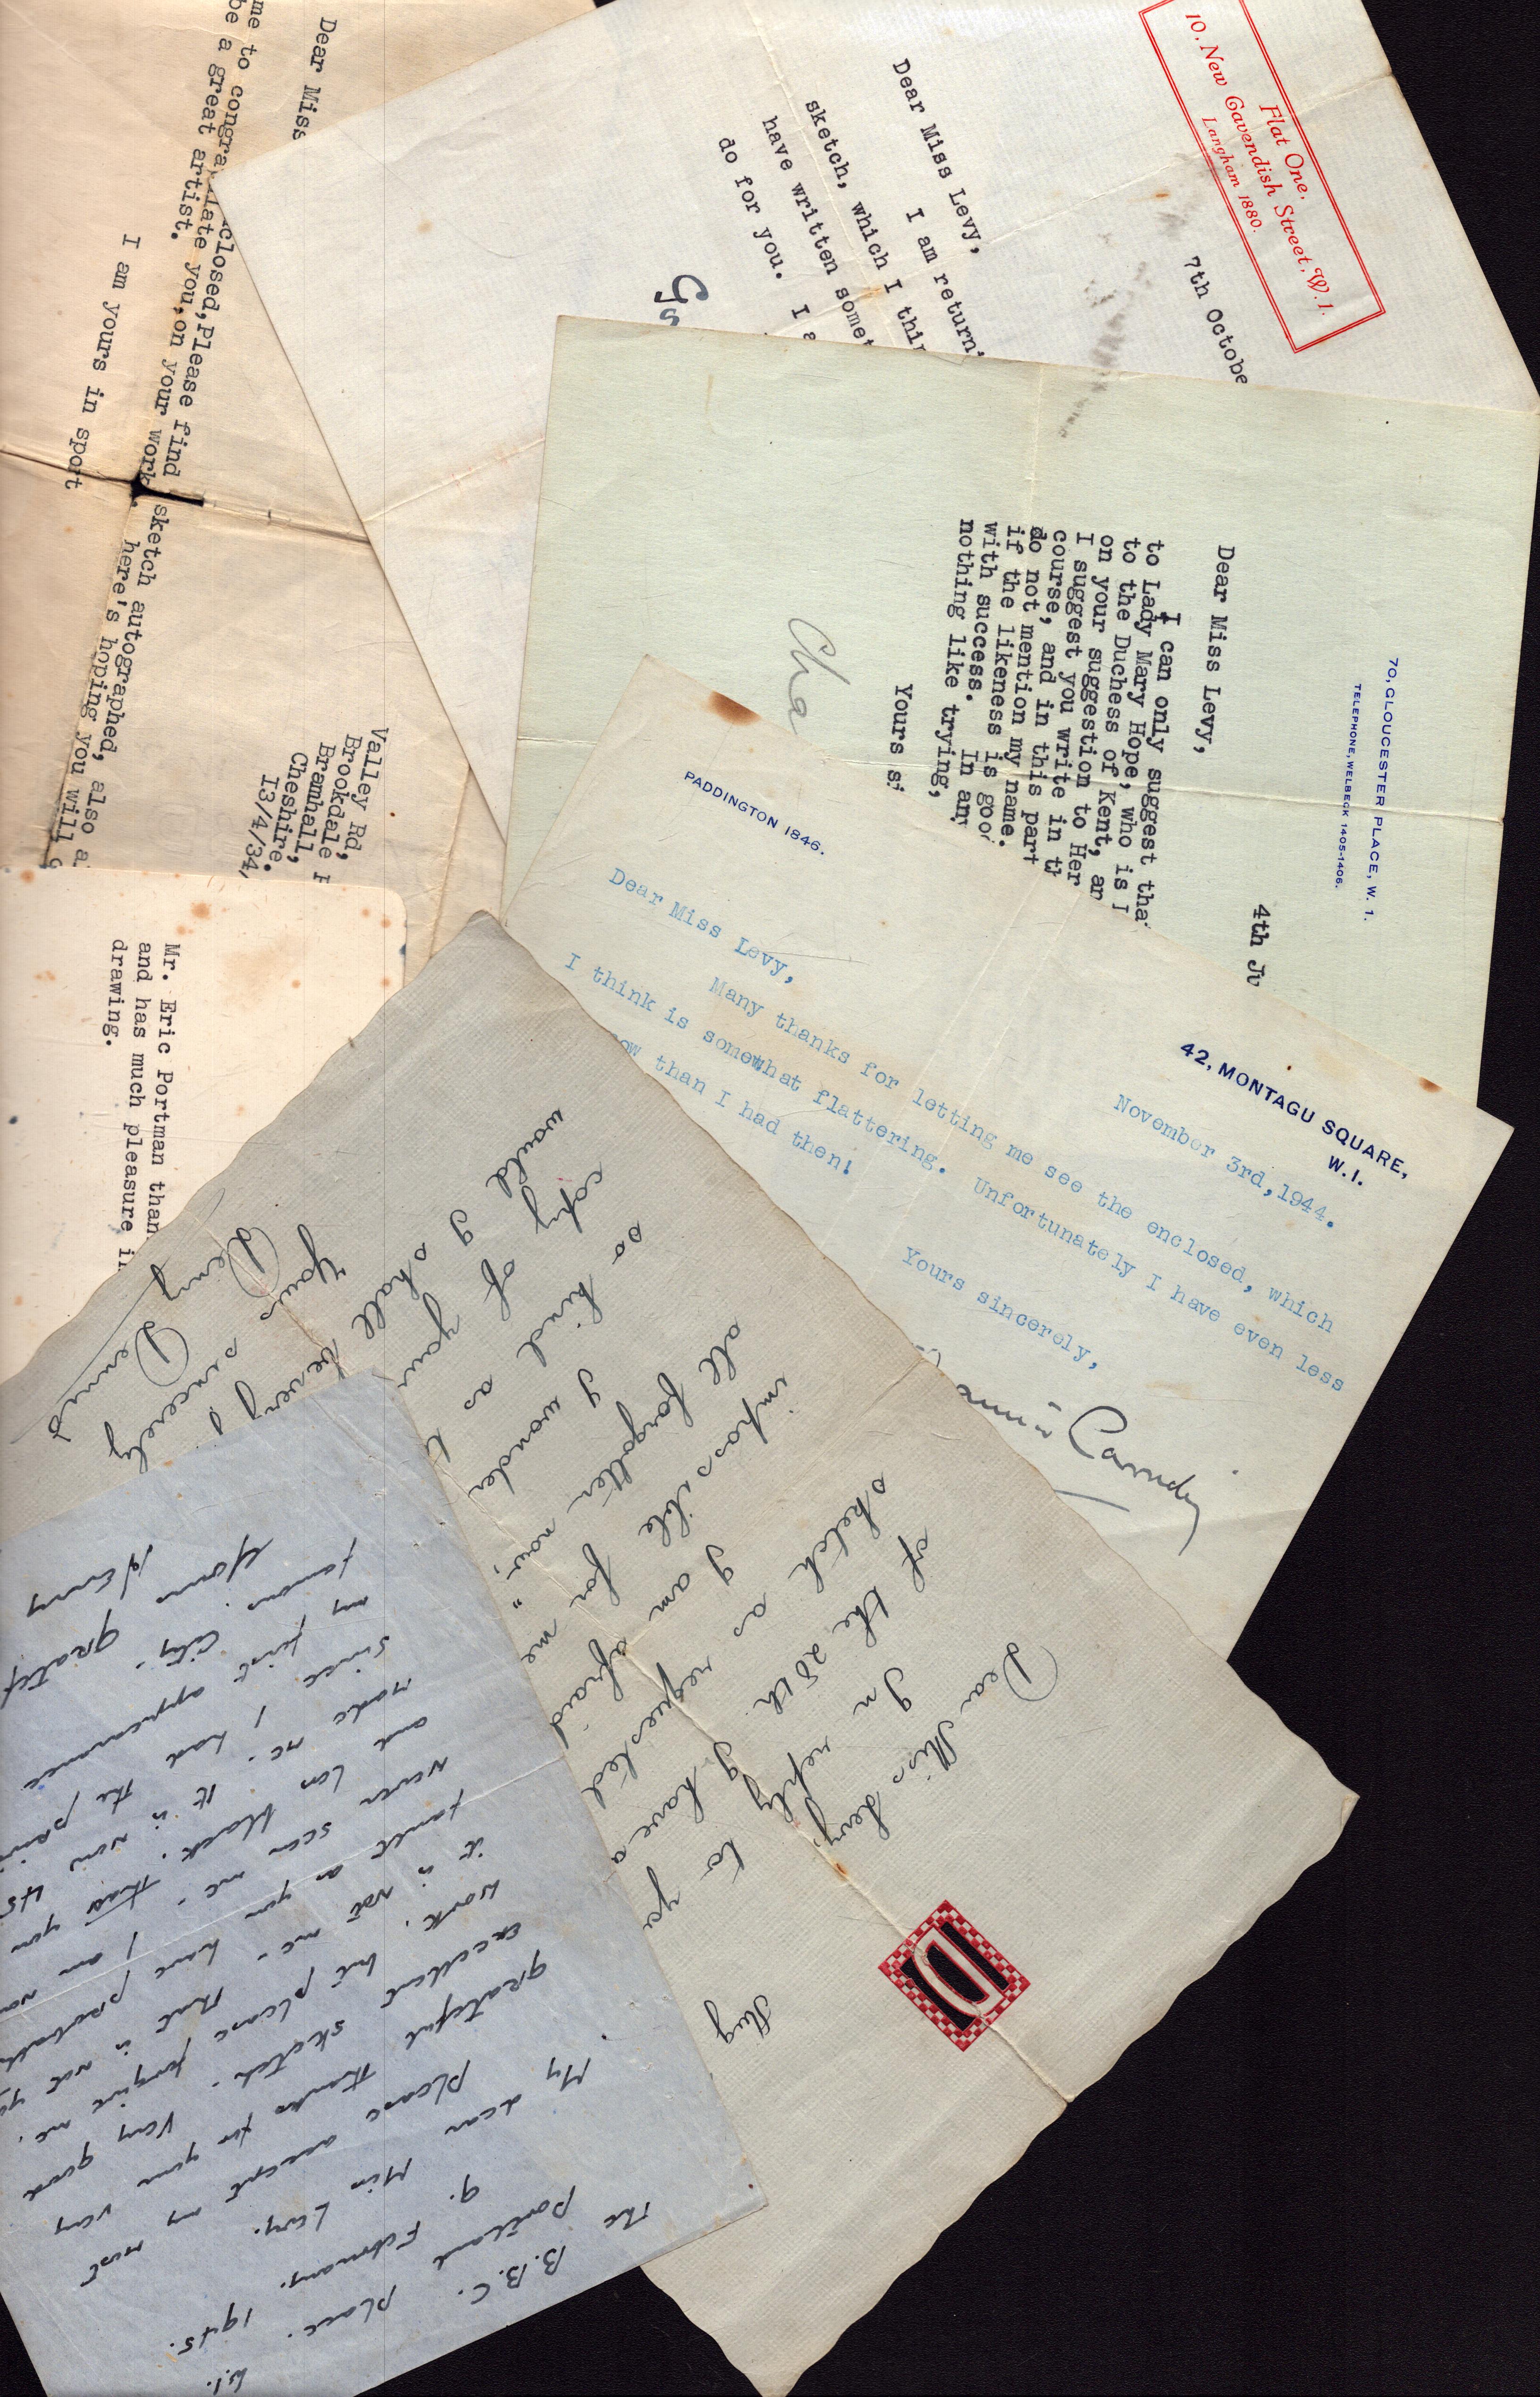 Dear Miss
closed, Please find sketch autographed, also a
me to congratulate you, on your work, here's hoping you will
be a great artist.
I am yours in sport
Valley Rd,
Brookdale
Bramhall,
Cheshire.
13/4/34,
Flat One,
10, New Cavendish Street, W.1.
Langham 1880.
7th Octobe
Dear Miss Levy,
I am return
sketch, which I thin
have written somet
do for you. I a
70, GLOUCESTER PLACE, W. 1.
TELEPHONE, WELBECK 1405-1406.
4th Ju
Dear Miss Levy,
I can only suggest tha
to Lady Mary Hope, who is
to the Duchess of Kent, an
on your suggestion to Her
I suggest you write in th
course, and in this part
do not mention my name.
if the likeness is good
with success. In any
nothing like trying,
Yours si
Cha
42, MONTAGU SQUARE,
W.1.
PADDINGTON 1846.
November 3rd, 1944.
Dear Miss Levy,
Many thanks for letting me see the enclosed, which
I think is somewhat flattering. Unfortunately I have even less
ow than I had then!
Yours sincerely,
Mr. Eric Portman than
and has much pleasure in
drawing.
101
Aug
Dear Miss Levy,
In reply to yo
of the 28th I have a
sketch as requested
I am afraid
impossible for me
all forgotten now,"
I wonder
so kind as t
copy of your
would I shall be very
Yours sincerely
Denny Dennis
The B.B.C.
Portland Place. W.1.
9. February. 1945.
My dear Miss Levy.
Please accept my most
grateful thanks for your very
excellent sketch. Very good
work, but please forgive me.
it is not me. That is not yo
fault as you have probably
never seen me. I am now
and has black. that you
made me. It is now 45
since I had the
my first appearance
famous City.
Yours grateful
Henry